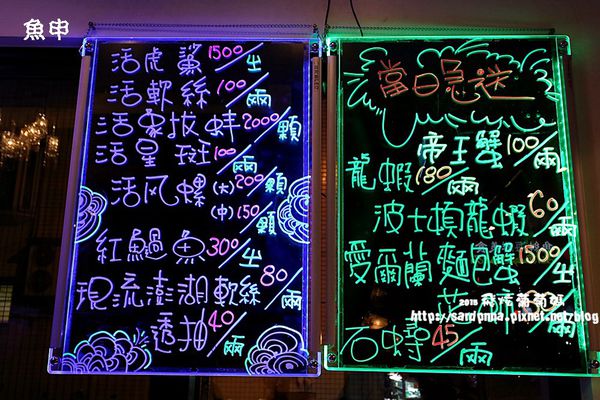 魚申
活虎鯊1500/尘
活軟絲100/兩
活象拔蚌2000/顆
活星斑100/兩
活风螺(大)200/顆
(中)150/顆
紅鰡魚300/尘
現流澎湖軟絲80/兩
透抽40/兩
當日急送
帝王蟹100/兩
龍蝦180/兩
波士頓龍蝦60/兩
愛爾蘭麵包蟹1500/尘
石蟳45/兩
https://sardonna.pixnet.net/blog